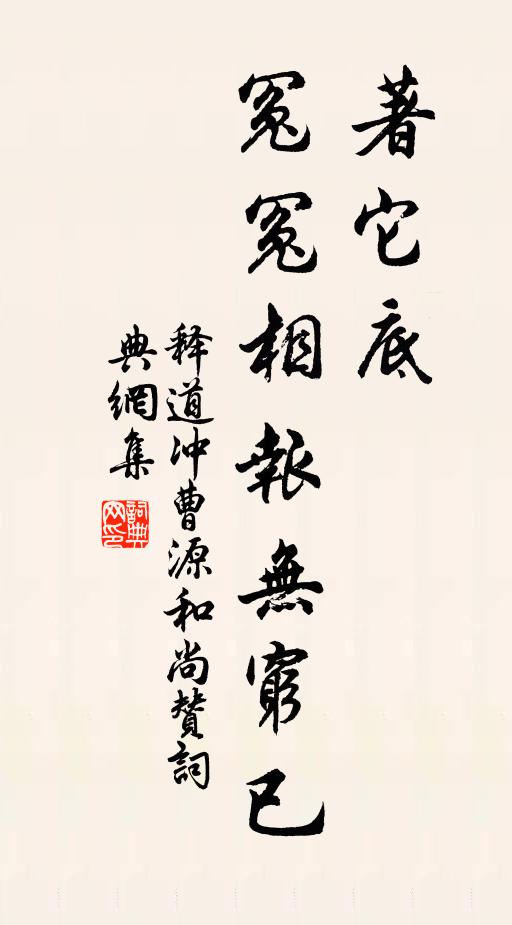 著它底
冤冤相報無窮已
释道冲曹源和尚贊詞
典網集
詞典网印